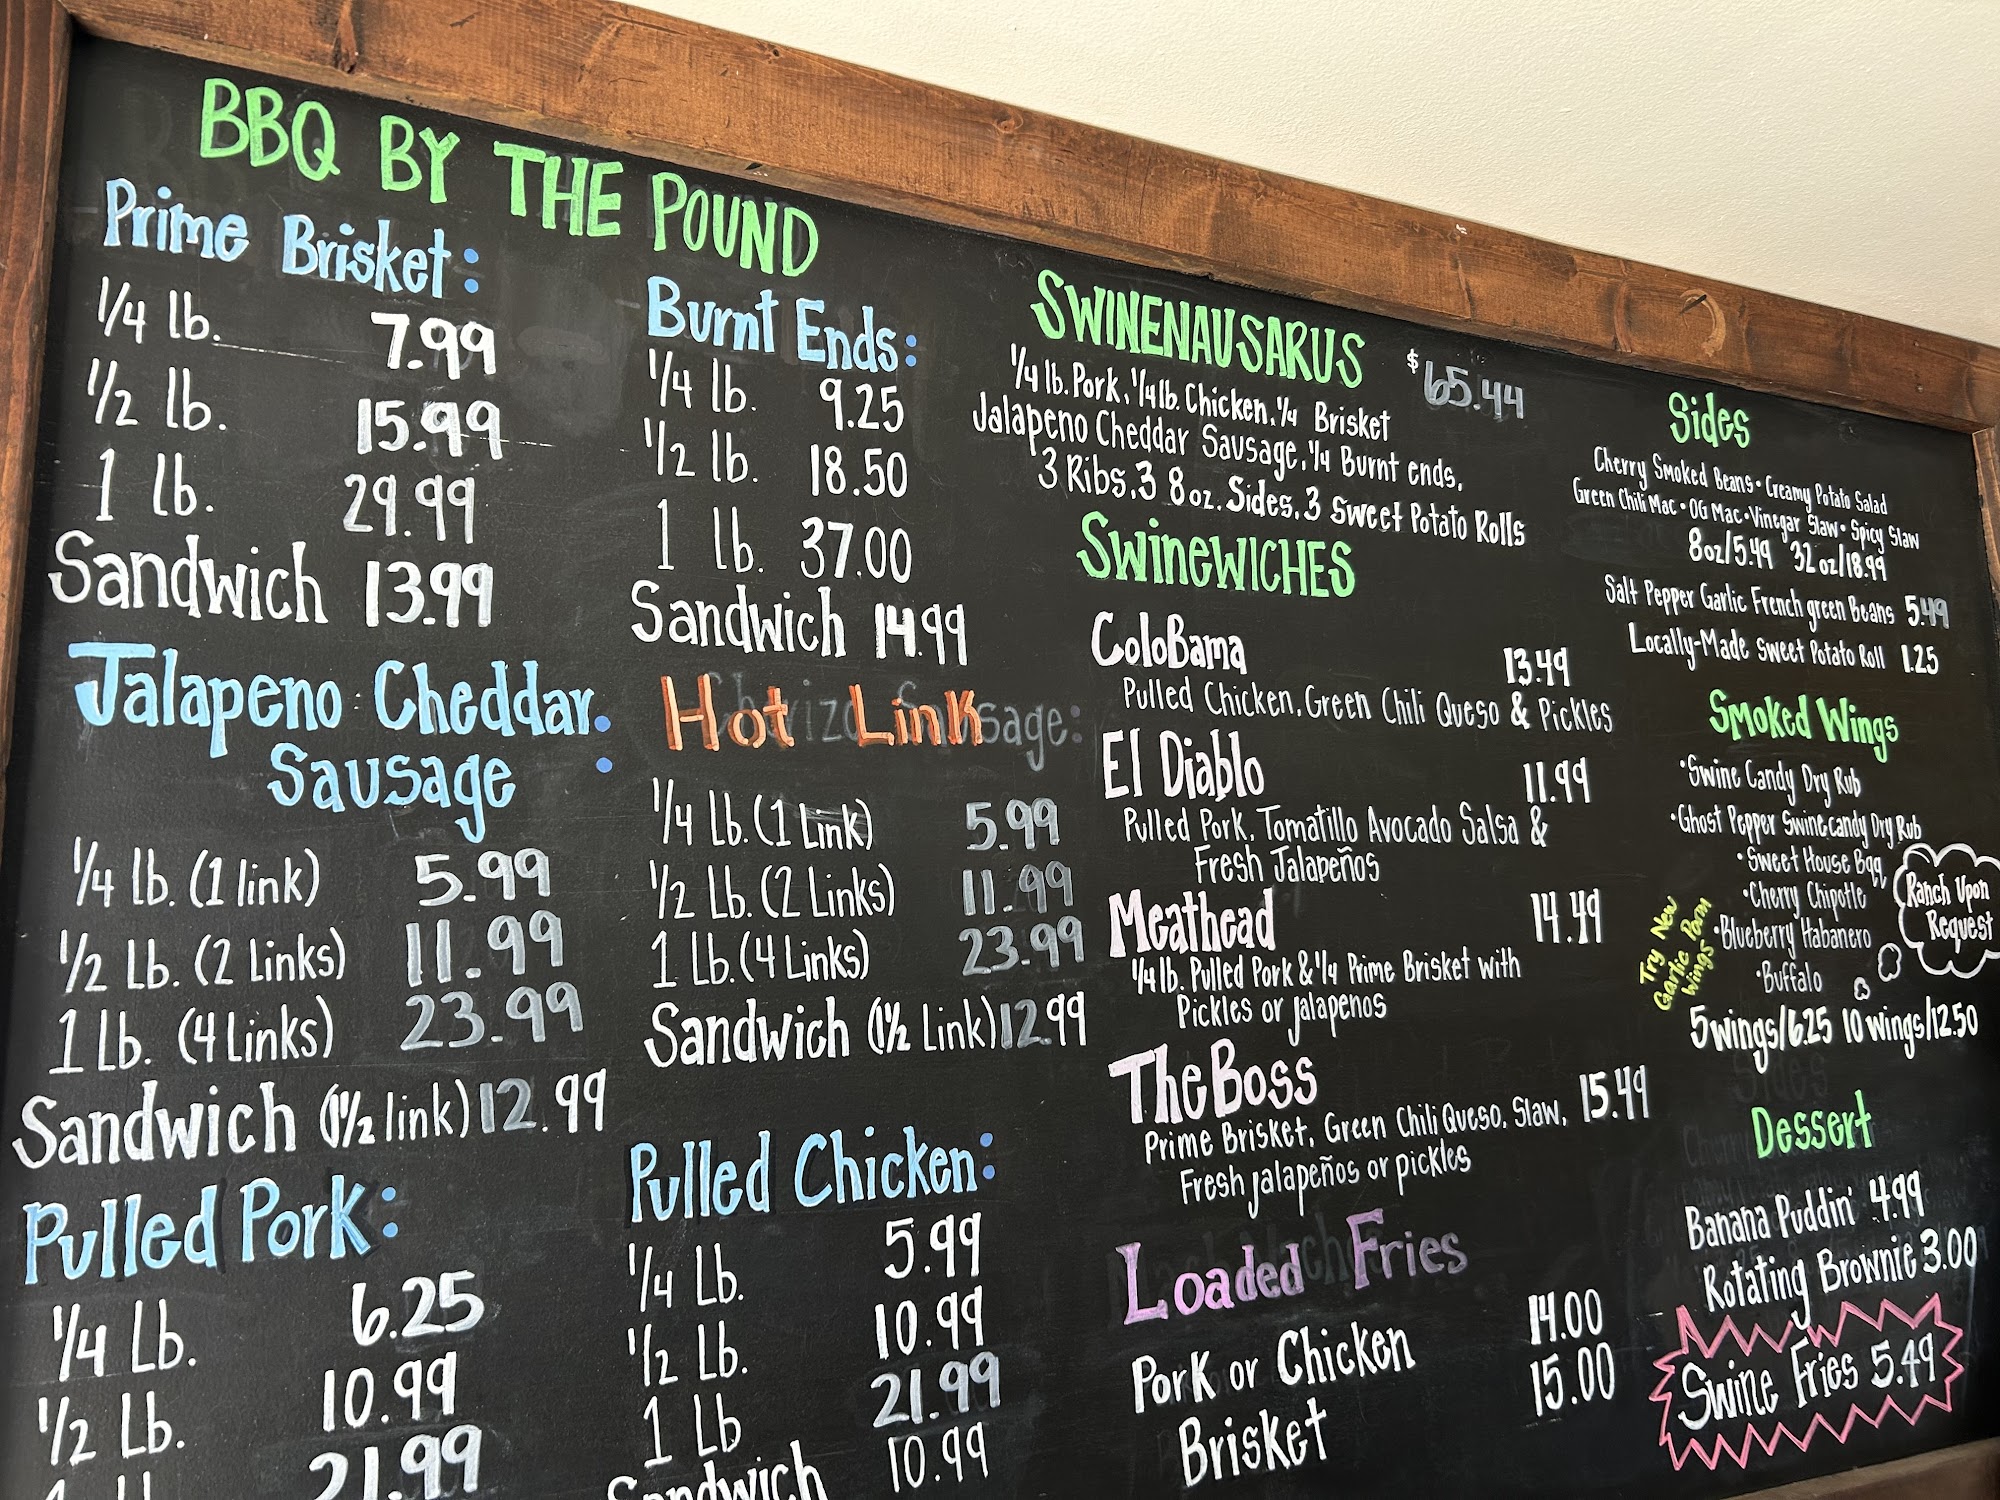 BBQ BY THE POUND
Prime Brisket:
1/4 lb. 7.99
1/2 lb. 15.99
1 lb. 29.99
Sandwich 13.99
Jalapeno Cheddar:
Sausage
1/4 lb. (1 link) 5.99
1/2 Lb. (2 Links) 11.99
1 Lb. (4 Links) 23.99
Sandwich (1 1/2 link) 12.99
Pulled Pork:
1/4 Lb. 6.25
1/2 Lb. 10.99
21.99
Burnt Ends:
1/4 lb. 9.25
1/2 lb. 18.50
1 lb. 37.00
Sandwich 14.99
Hot Link
1/4 Lb. (1 Link) 5.99
1/2 Lb. (2 Links) 11.99
1 Lb. (4 Links) 23.99
Sandwich (1 1/2 Link) 12.99
Pulled Chicken:
1/4 Lb. 5.99
1/2 Lb. 10.99
1 Lb 21.99
Sandwich 10.99
SWINENAUSARUS $65.44
1/4 lb. Pork, 1/4 lb. Chicken, 1/4 Brisket
Jalapeno Cheddar Sausage, 1/4 Burnt ends,
3 Ribs, 3 8oz. Sides, 3 Sweet Potato Rolls
SWINEWICHES
ColoBama 13.49
Pulled Chicken, Green Chili Queso & Pickles
El Diablo 11.99
Pulled Pork, Tomatillo Avocado Salsa &
Fresh Jalapeños
Meathead 14.49
1/4 lb. Pulled Pork & 1/4 Prime Brisket with
Pickles or jalapenos
The Boss 15.49
Prime Brisket, Green Chili Queso, Slaw,
Fresh jalapeños or pickles
Loaded Fries
Pork or Chicken 14.00
Brisket 15.00
Sides
Cherry Smoked Beans • Creamy Potato Salad
Green Chili Mac • OG Mac • Vinegar Slaw • Spicy Slaw
8oz/5.49 32 oz/18.99
Salt Pepper Garlic French green Beans 5.49
Locally-Made Sweet Potato Roll 1.25
Smoked Wings
•Swine Candy Dry Rub
•Ghost Pepper Swinecandy Dry Rub
•Sweet House Bqq
•Cherry Chipotle
•Blueberry Habanero
•Buffalo
Ranch Upon
Request
Try New
Garlic Parm
Wings
5 wings/6.25 10 wings/12.50
Dessert
Banana Puddin' 4.99
Rotating Brownie 3.00
Swine Fries 5.49